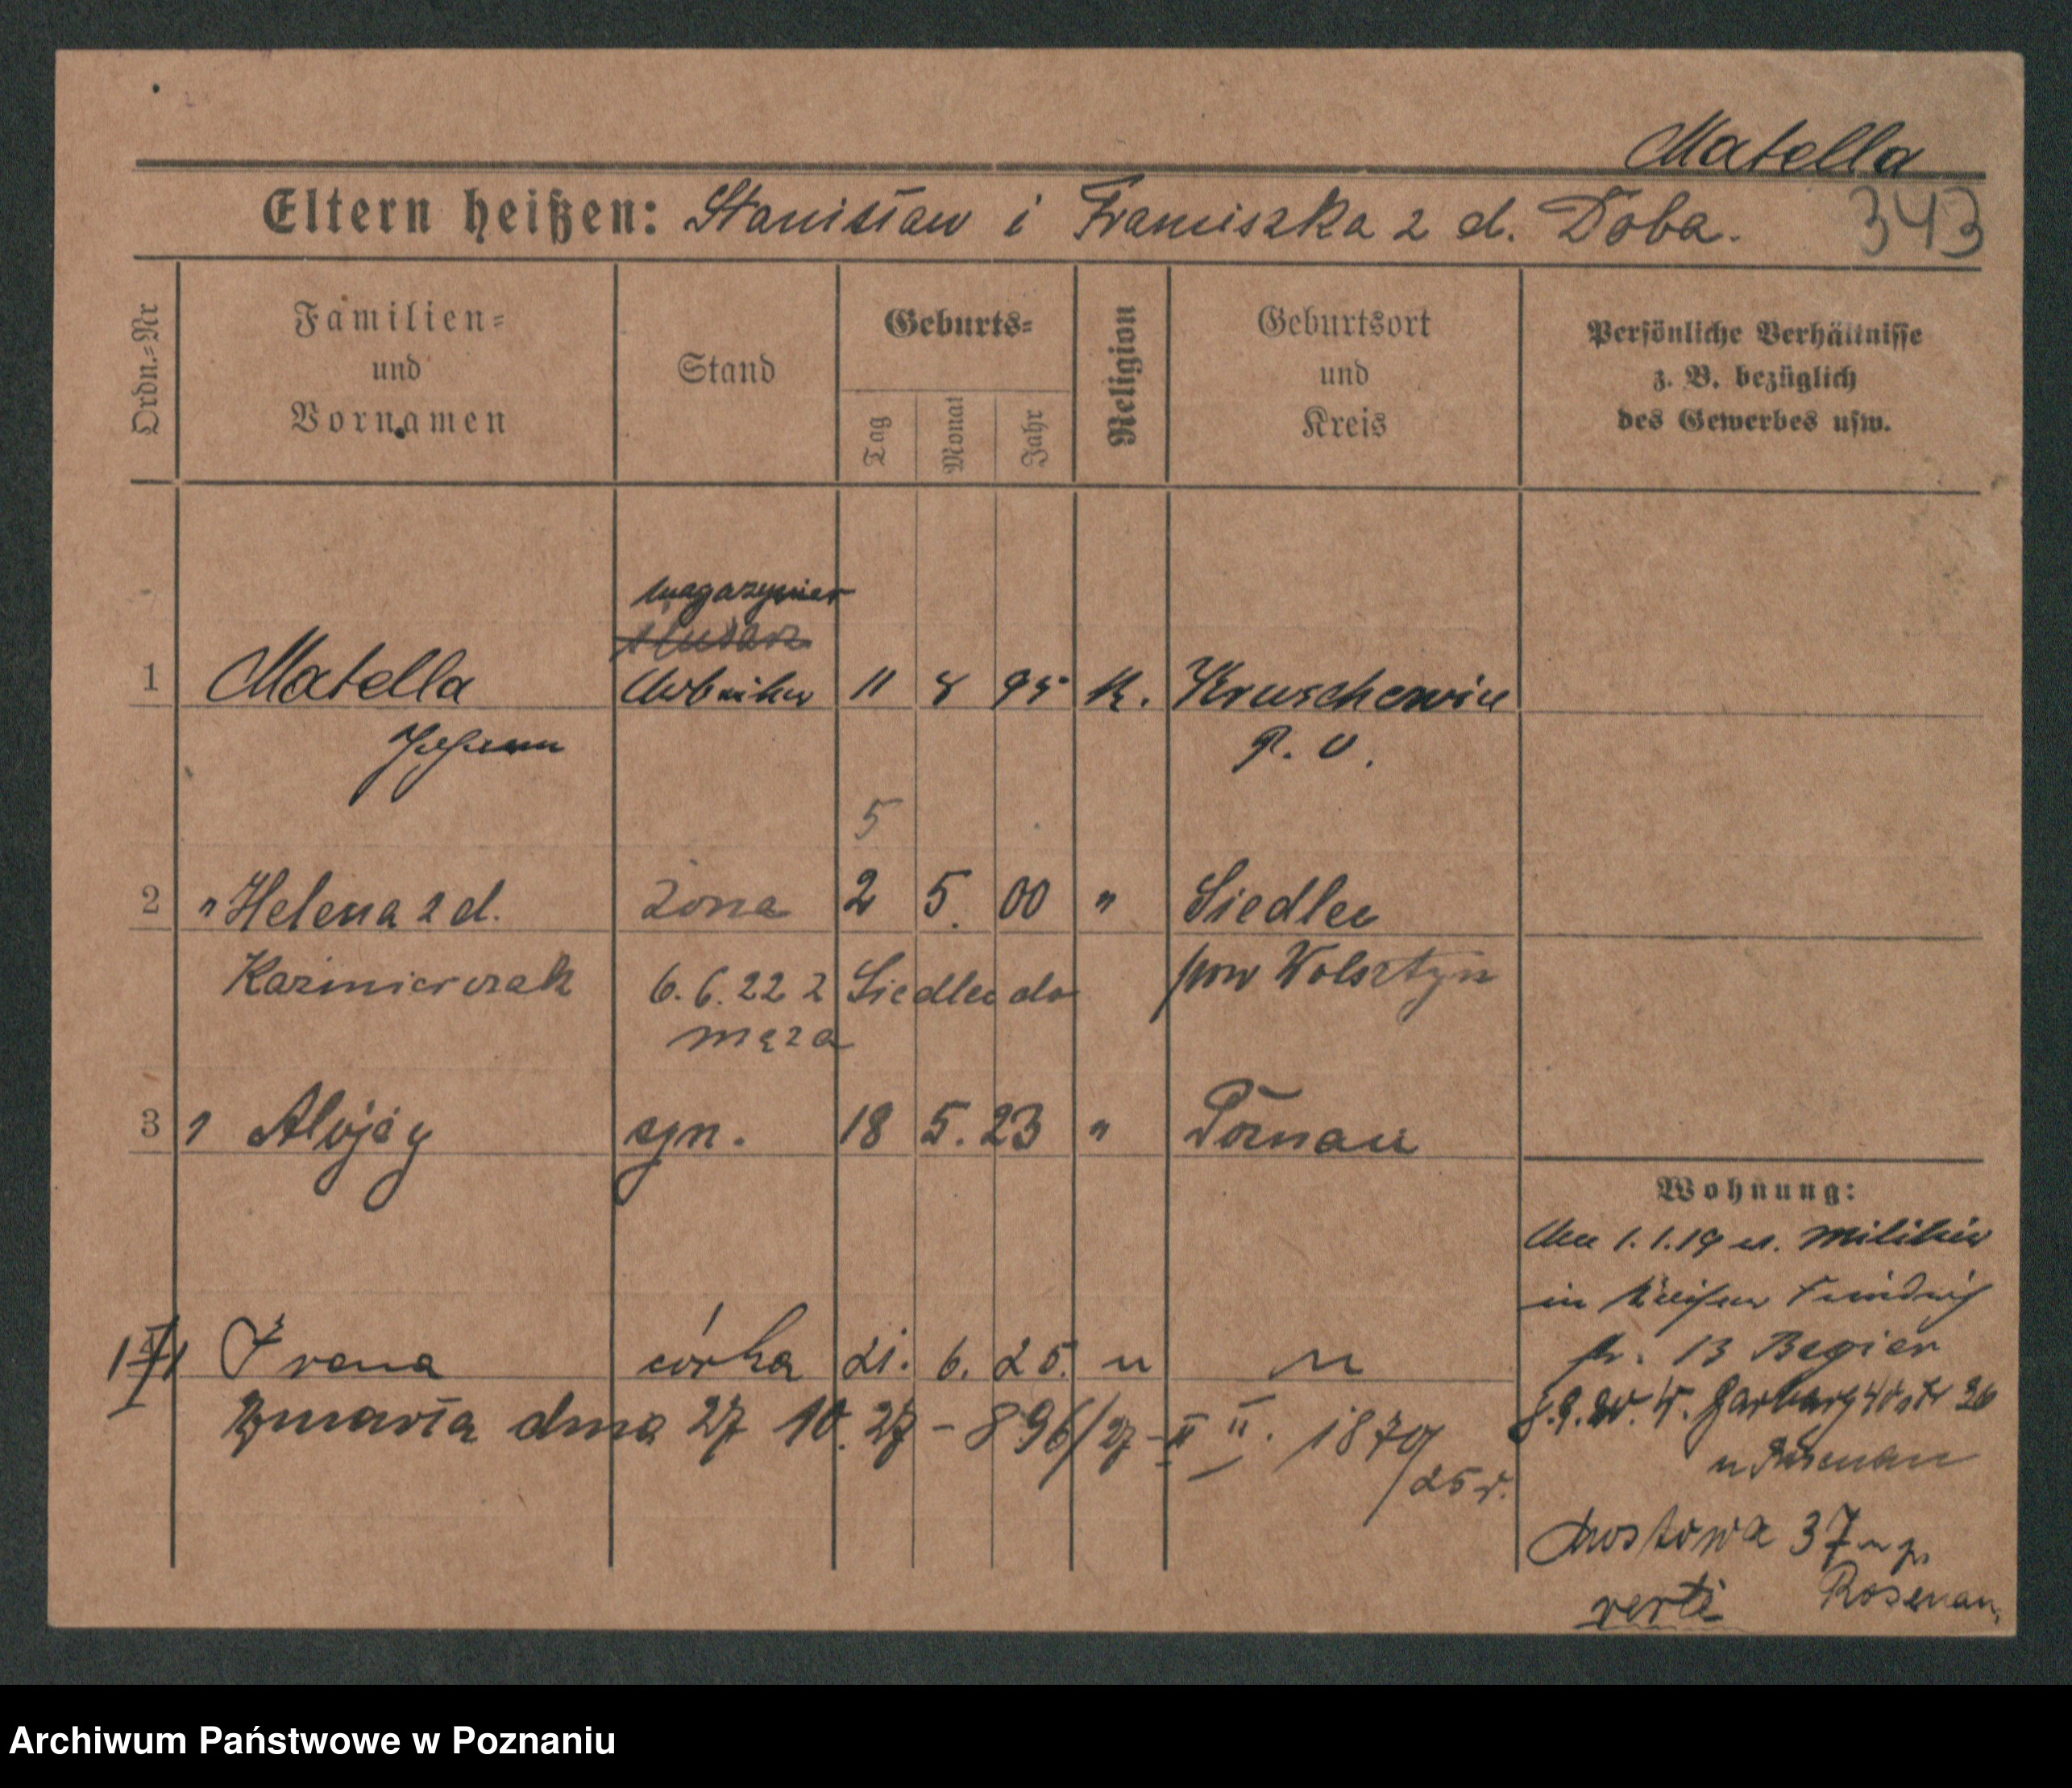 Matella
Eltern heißen: Stanisław i Franciszka z d. Doba.
343
Ordn.=Nr
Familien=
und
Vornamen
Stand
Geburts=
Tag
Monat
Jahr
Religion
Geburtsort
und
Kreis
Persönliche Verhältnisse
z. B. bezüglich
des Gewerbes usw.
magazynier
1 Matella Arbeiter 11 8 95 K. Kruschewin
Johann P. O.
5
2 " Helena z d. żona 2 5. 00 " Siedlec
Kaźmierczak 6.6.22 z Siedlec do pow Wolsztyn
męża
3 " Alojzy syn. 18 5. 23 " Poznań
Wohnung:
1.1.19 v. Militär
in
str. 13 Begier
Irena córka 21. 6. 25. " "
Zmarła dnia 27 10. 27 - 896/27 - II II. 1870/25 r.
Garbary 40 26
Mostowa 37
verte Rosenau
Archiwum Państwowe w Poznaniu